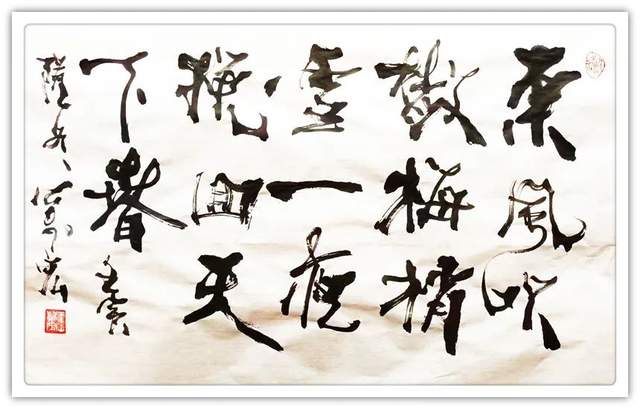 東風吹
散梅梢
雪一夜
挽回天
下春壬寅